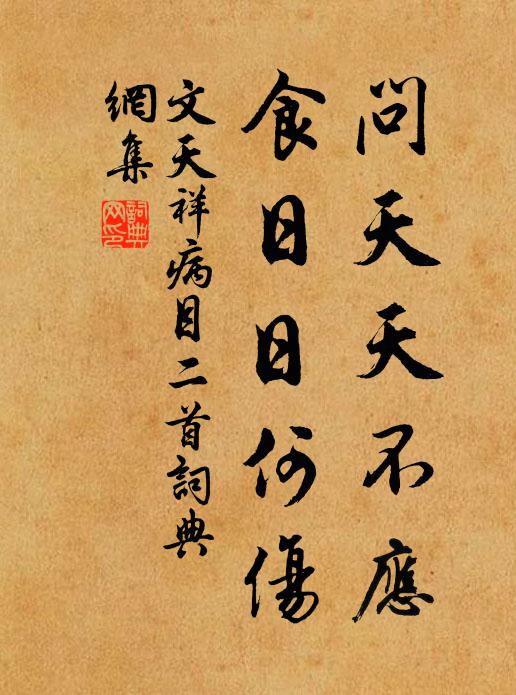 問天天不應
食日日何傷
文天祥病目二首詞典
網集
詞典
网印